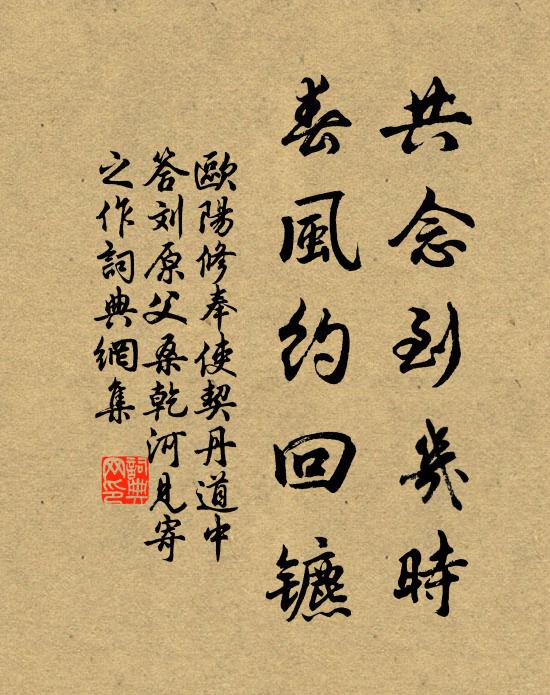 共念到幾時
春風約回镳
歐陽修奉使契丹道中
答刘原父桑乾河見寄
之作詞典網集
詞典
网印